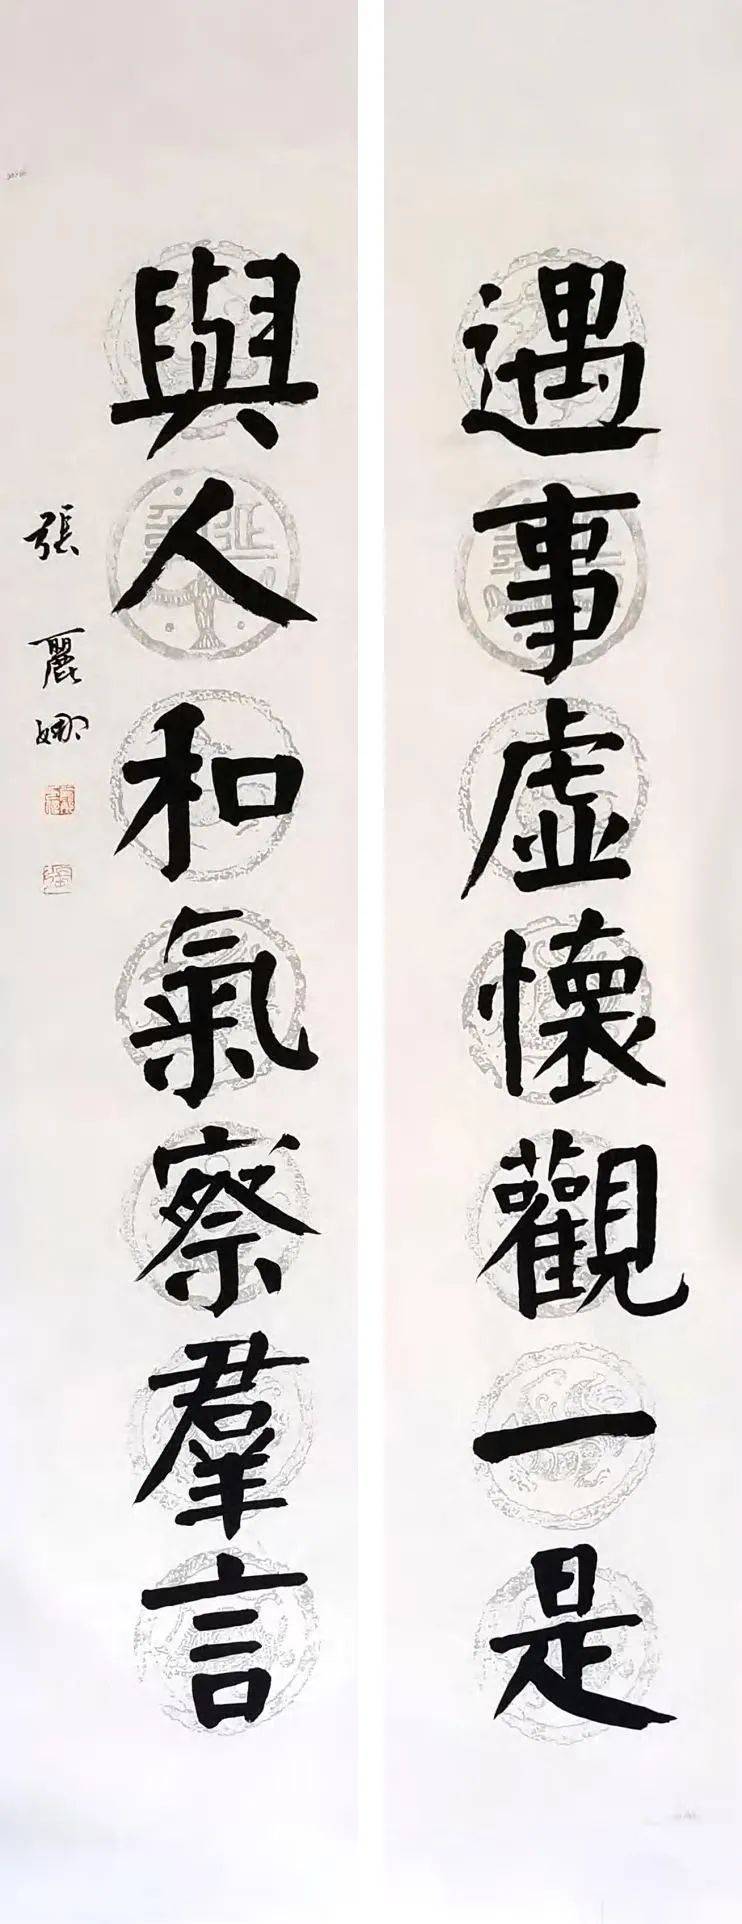 遇事虛懷觀一是
與人和氣察羣言
張麗娜